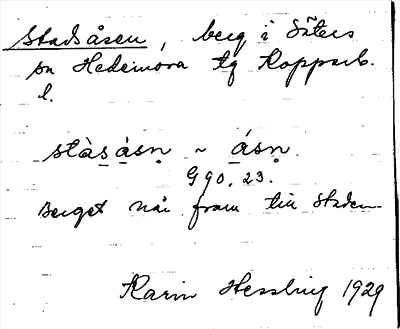 Stadsåsen, berg i Säters
sn Hedemora tg Kopparb.
l.
stàsásn ~ ásn.
G 90. 23.
Berget når fram till staden
Karin Hessling 1929